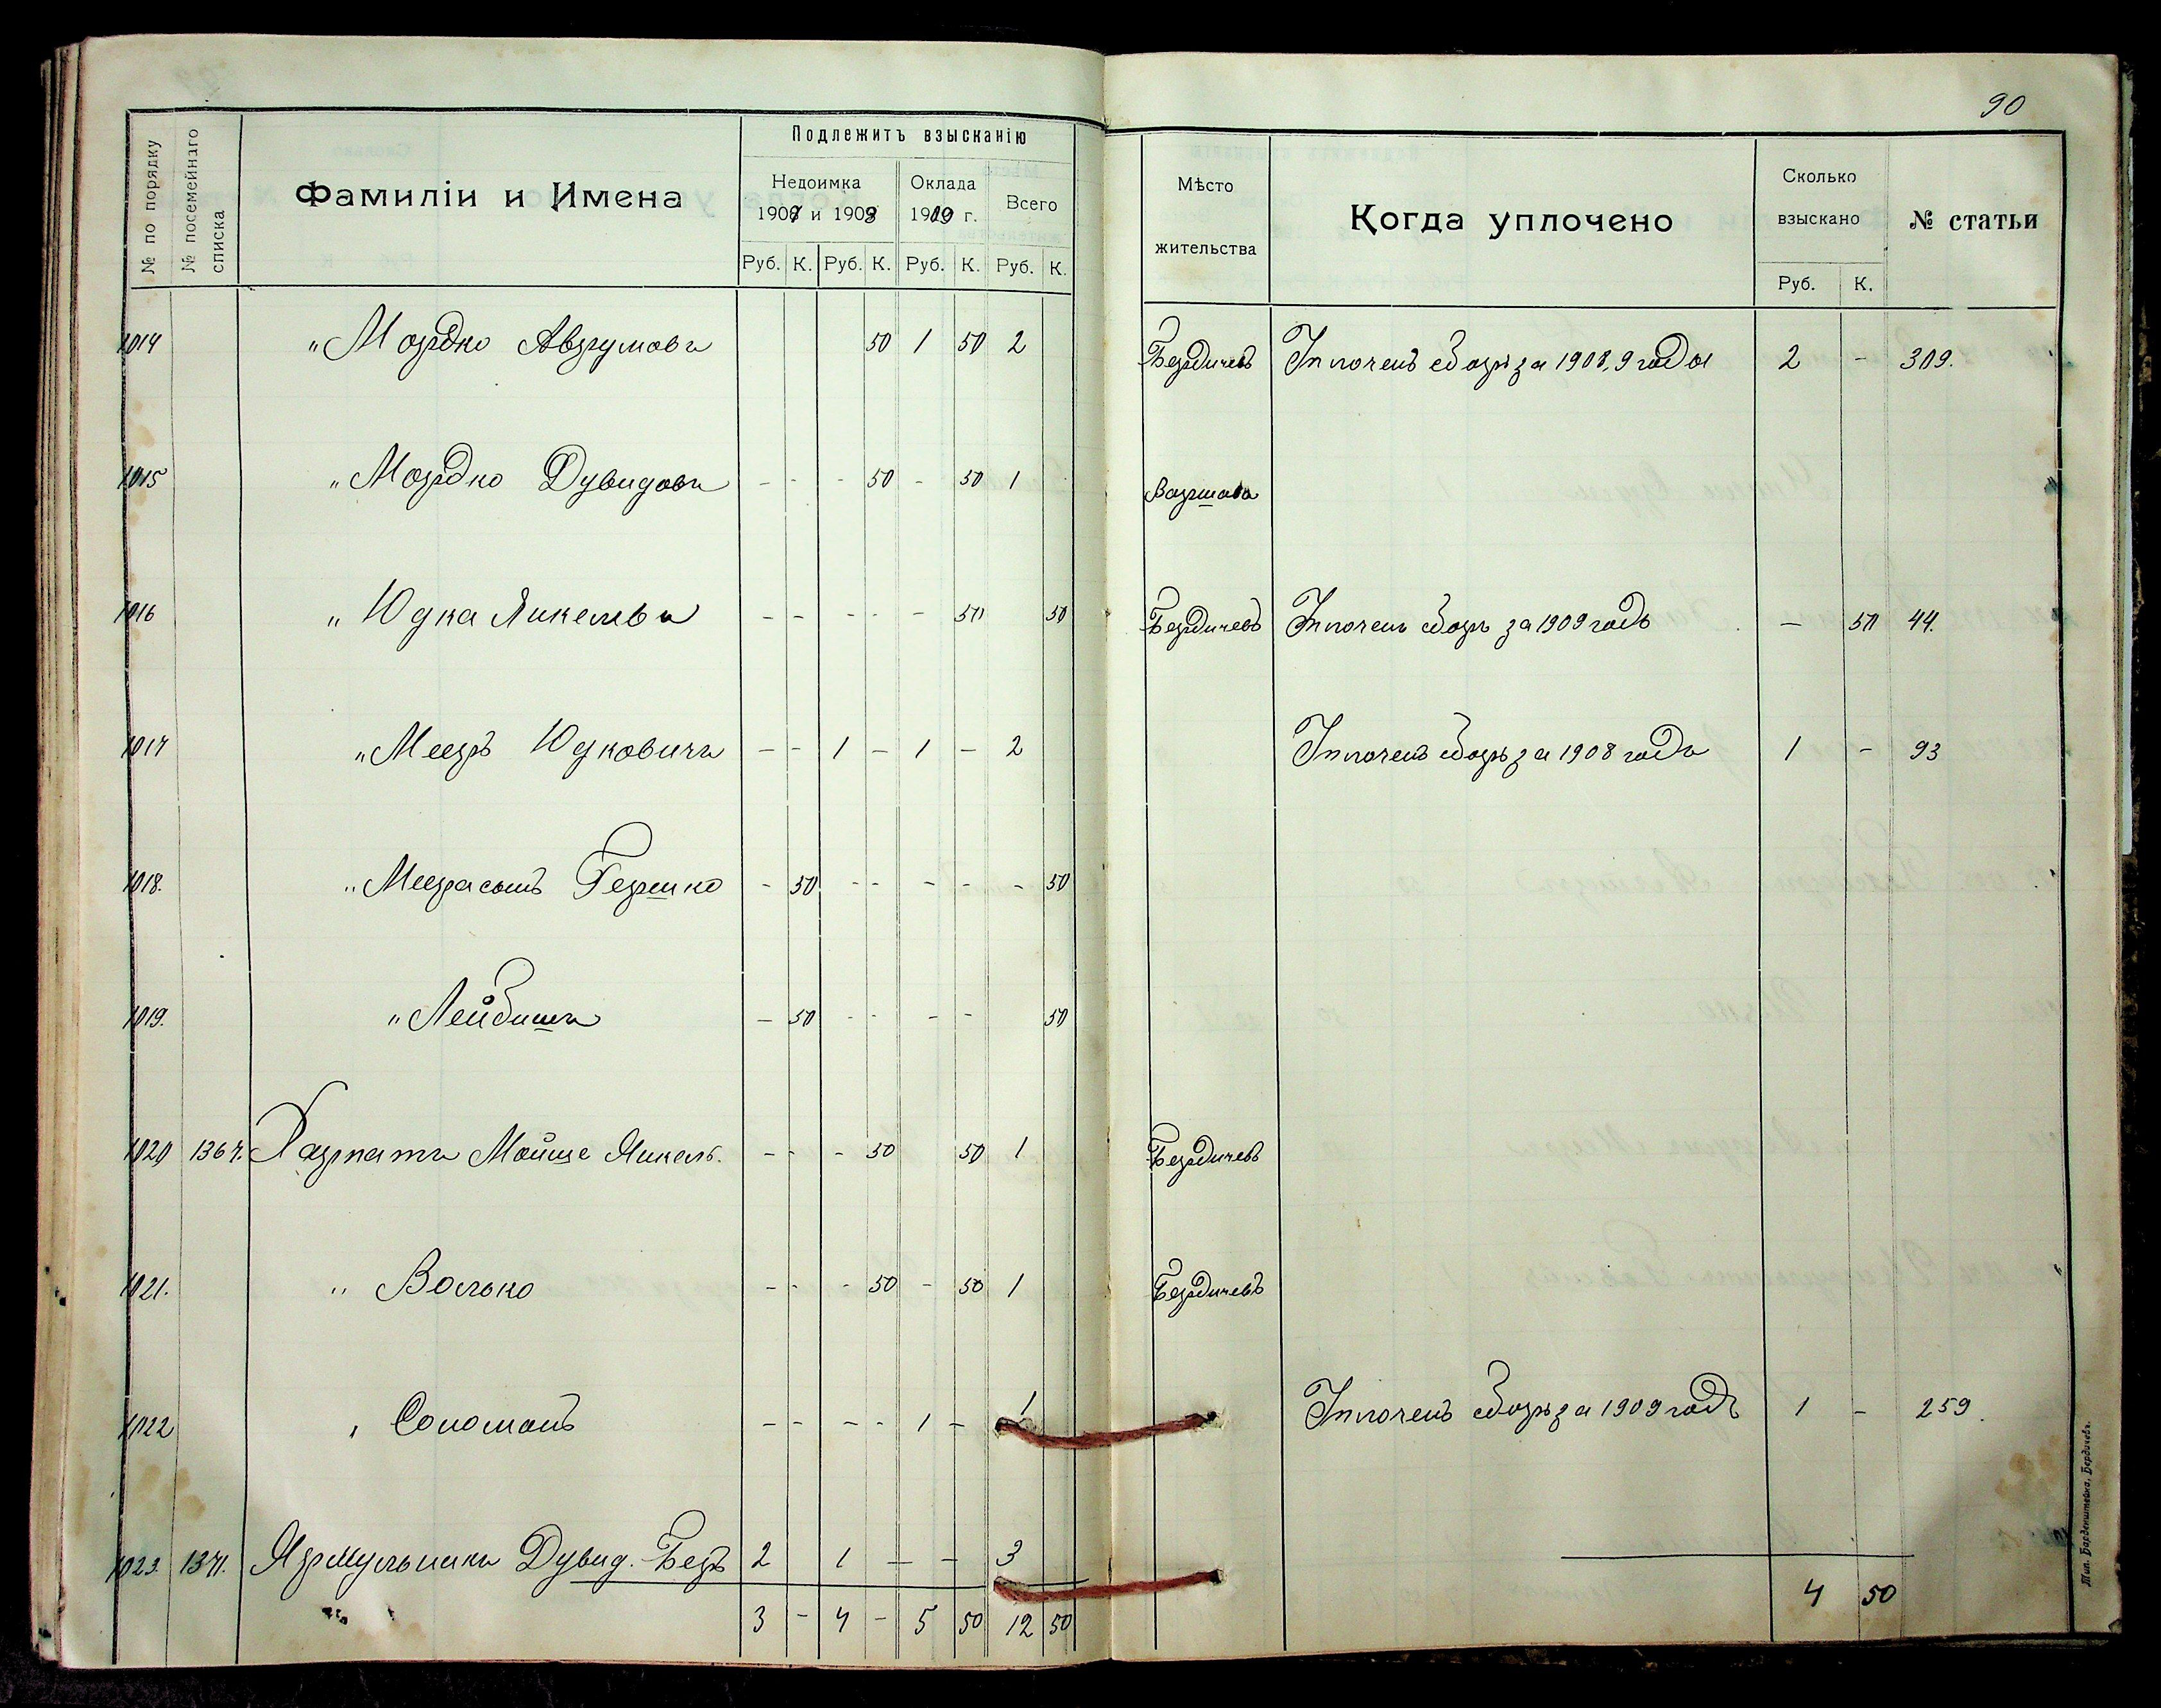 90
№ по порядку
№ посемейнаго списка
Фамиліи и Имена
Подлежитъ взысканію
Недоимка
1907 и 1908
Оклада
1909 г.
Всего
Руб. К. Руб. К. Руб. К. Руб. К.
Мѣсто жительства
Когда уплочено
Сколько взыскано
Руб. К.
№ статьи
1014 " Мордко Аврумовъ 50 1 50 2 Бердичевъ Уплоченъ сборъ за 1908, 9 годы 2 - 309.
1015 " Мордко Дувидовъ - - - 50 - 50 1 Варшава
1016 " Юдка Янкелевъ - - - - - 50 50 Бердичевъ Уплоченъ сборъ за 1909 годъ - 50 44.
1017 " Мееръ Юдковичъ - - 1 - 1 - 2 Уплоченъ сборъ за 1908 годъ 1 - 93
1018. " Меера сынъ Гершко - 50 - - - - - 50
1019. " Лейбишъ - 50 - - - - 50
1020 1367. Мойше Янкель. - - - 50 50 1 Бердичевъ
1021. " Волько - - - 50 - 50 1 Бердичевъ
1022 " Соломонъ - - - - 1 - 1 Уплоченъ сборъ за 1909 годъ 1 - 259.
1023. 1371. Ярмульникъ Дувид.-Беръ 2 1 - - 3
3 - 4 - 5 50 12 50 4 50
Тип. Барденштейна, Бердичевъ.